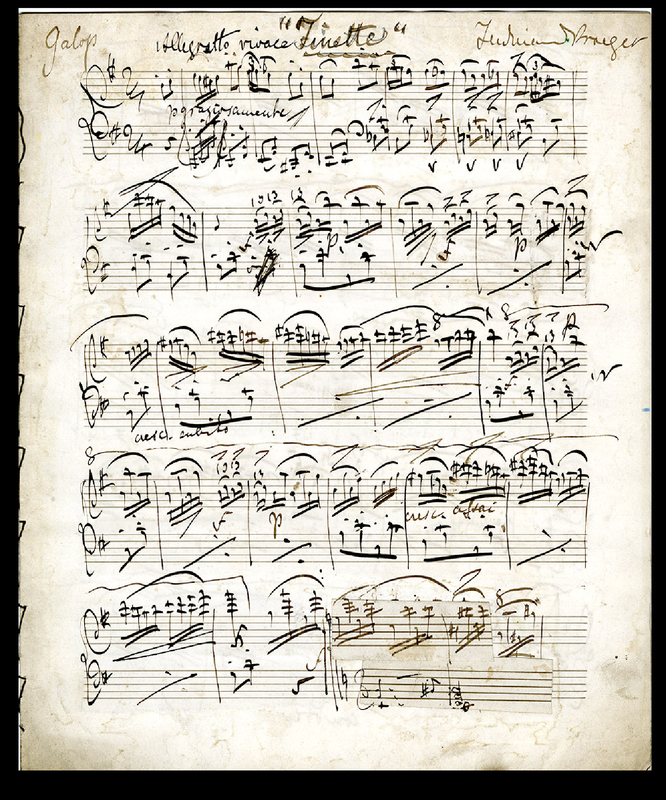 Galop Allegretto vivace "Finette" Ferdinand Praeger
p graziosamente
p
p
8 8 p
cresc. subito
8
f p cresc. assai
8